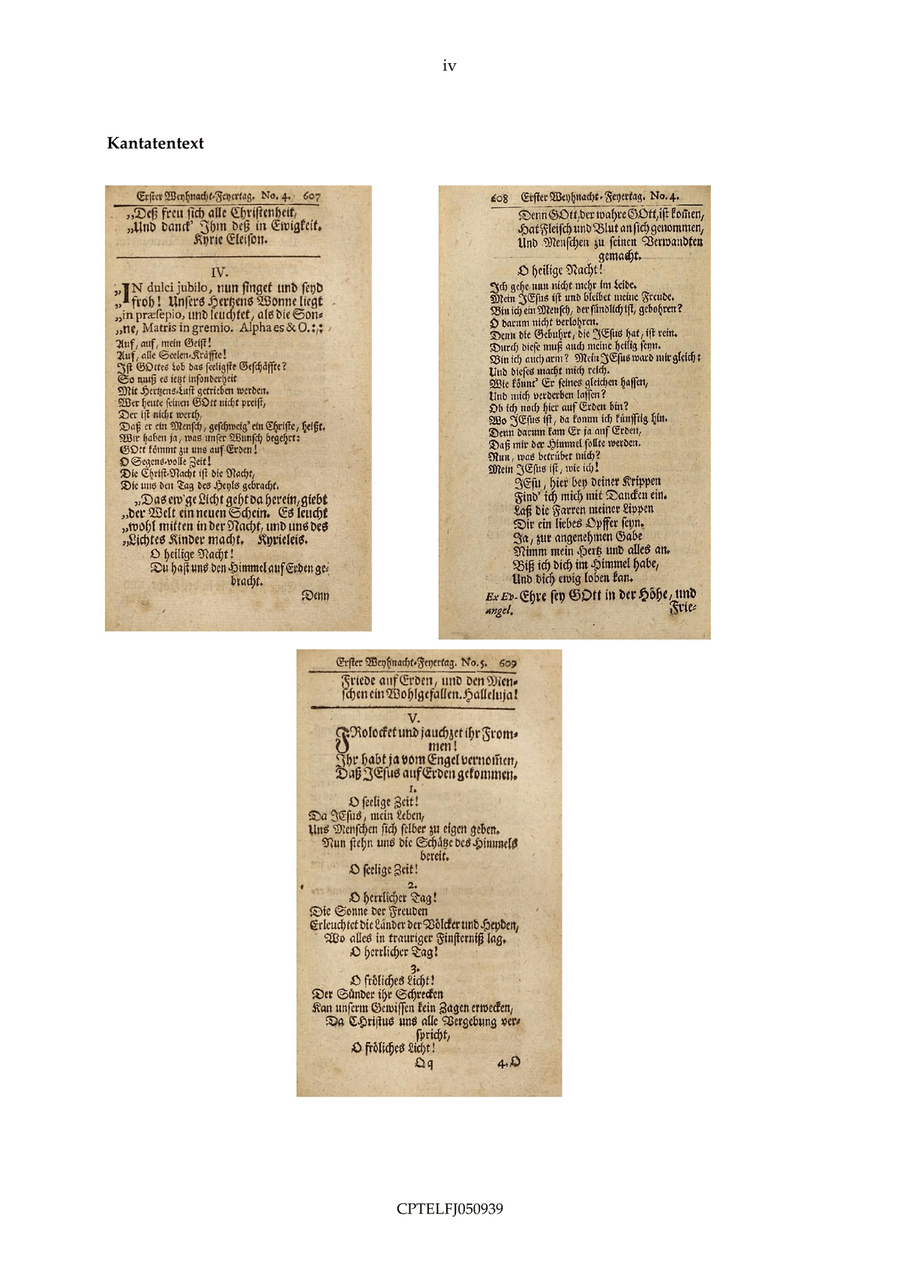 iv
Kantatentext
Erster Weyhnacht-Feyertag. No. 4. 607
„Deß freu sich alle Christenheit,
„Und danck' Ihm deß in Ewigkeit.
Kyrie Eleison.
IV.
„IN dulci jubilo, nun singet und seyd
„froh! Unsers Hertzens Wonne liegt
„in præsepio, und leuchtet, als die Son-
„ne, Matris in gremio. Alpha es & O.:,:
Auf, auf, mein Geist!
Auf, alle Seelen-Kräffte!
Ist GOttes Lob das seeligste Geschäffte?
So muß es ietzt insonderheit
Mit Hertzens-Lust getrieben werden.
Wer heute seinen GOtt nicht preist,
Der ist nicht werth,
Daß er ein Mensch, geschweig' ein Christe, heißt.
Wir haben ja, was unser Wunsch begehrt:
GOtt kömmt zu uns auf Erden!
O Segens-volle Zeit!
Die Christ-Nacht ist die Nacht,
Die uns den Tag des Heyls gebracht.
„Das ew'ge Licht geht da herein, giebt
„der Welt ein neuen Schein. Es leucht
„wohl mitten in der Nacht, und uns des
„Lichtes Kinder macht. Kyrieleis.
O heilige Nacht!
Du hast uns den Himmel auf Erden ge-
bracht.
Denn
608 Erster Weyhnacht-Feyertag. No. 4.
Denn GOtt, der wahre GOtt, ist kom̃en,
Hat Fleisch und Blut an sich genommen,
Und Menschen zu seinen Verwandten
gemacht.
O heilige Nacht!
Ich gehe nun nicht mehr im Leide.
Mein JEsus ist und bleibet meine Freude.
Bin ich ein Mensch, der sündlich ist, gebohren?
O darum nicht verlohren.
Denn die Gebuhrt, die JEsus hat, ist rein.
Durch diese muß auch meine heilig seyn.
Bin ich auch arm? Mein JEsus ward mir gleich:
Und dieses macht mich reich.
Wie könnt' Er seines gleichen hassen,
Und mich verderben lassen?
Ob ich noch hier auf Erden bin?
Wo JEsus ist, da komm ich künfftig hin.
Denn darum kam Er ja auf Erden,
Daß mir der Himmel sollte werden.
Nun, was betrübet mich?
Mein JEsus ist, wie ich!
JEsu, hier bey deiner Krippen
Find' ich mich mit Dancken ein.
Laß die Farren meiner Lippen
Dir ein liebes Opffer seyn.
Ja, zur angenehmen Gabe
Nimm mein Hertz und alles an.
Biß ich dich im Himmel habe,
Und dich ewig loben kan.
Ex Ev- Ehre sey GOtt in der Höhe, und
angel. Frie-
Erster Weyhnacht-Feyertag. No. 5. 609
Friede auf Erden, und den Men-
schen ein Wohlgefallen. Halleluja!
V.
FRolocket und jauchzet ihr From-
men!
Ihr habt ja vom Engel vernom̃en,
Daß JEsus auf Erden gekommen.
1.
O seelige Zeit!
Da JEsus, mein Leben,
Uns Menschen sich selber zu eigen geben.
Nun stehn uns die Schätze des Himmels
bereit.
O seelige Zeit!
2.
O herrlicher Tag!
Die Sonne der Freuden
Erleuchtet die Länder der Völcker und Heyden,
Wo alles in trauriger Finsterniß lag.
O herrlicher Tag!
3.
O fröliches Licht!
Der Sünder ihr Schrecken
Kan unserm Gewissen kein Zagen erwecken,
Da CHristus uns alle Vergebung ver-
spricht,
O fröliches Licht!
Qq 4. O
CPTELFJ050939